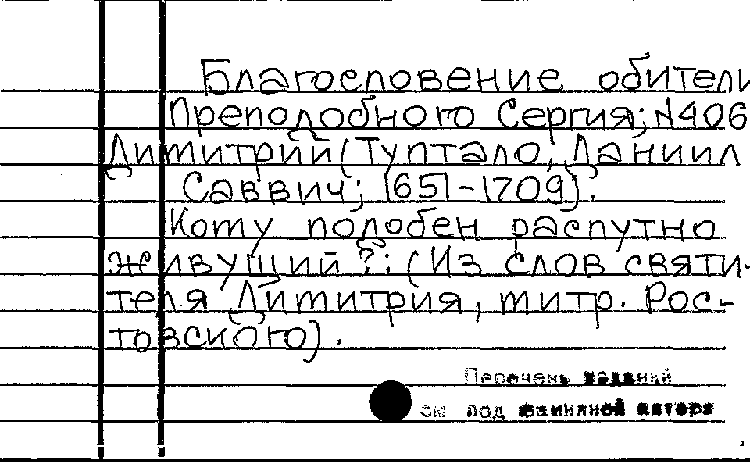 Благословение обители
Преподобного Сергия; №406
Димитрий (Туптало, Даниил
Саввич; 1651-1709).
Кому подобен распутно
живущий?: (Из слов святи-
теля Димитрия, митр. Рос-
товского).
Перечень изданий
см под фамилией автора